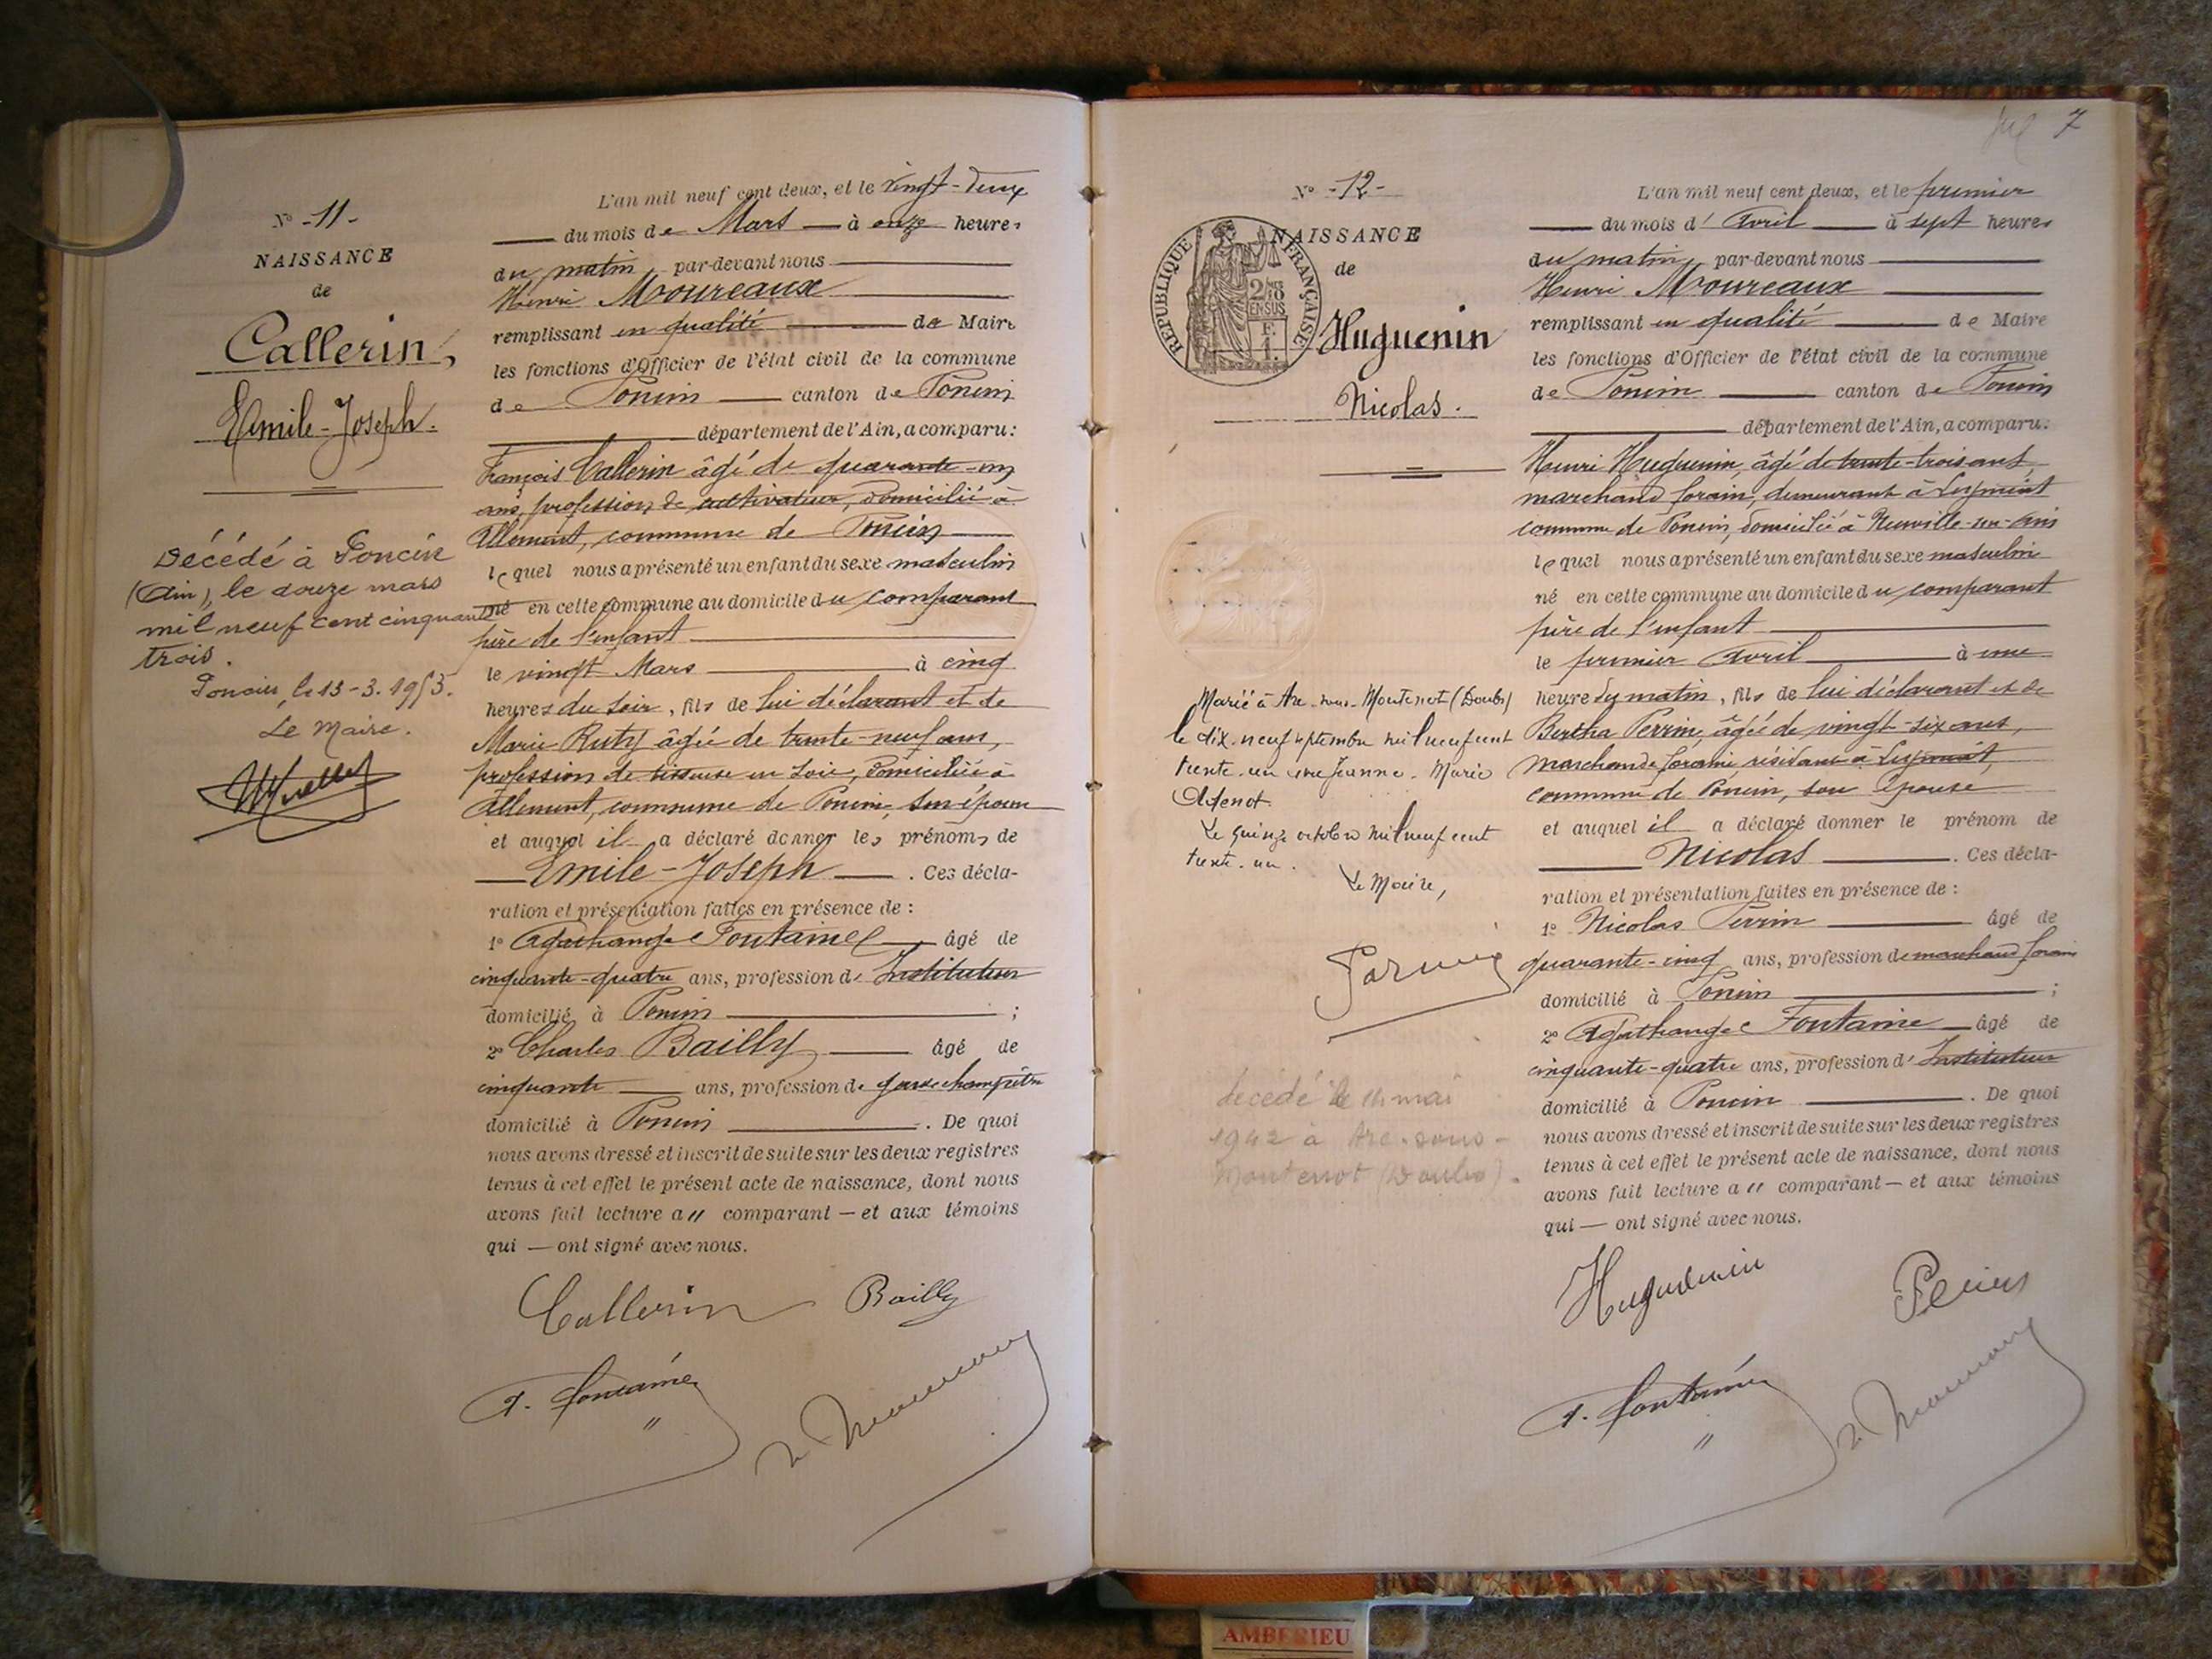 N° -11-
NAISSANCE
de
Callerin,
Emile-Joseph.
Décédé à Poncin
(Ain), le douze mars
mil neuf cent cinquante
trois.
Poncin, le 13-3.1953.
Le Maire.
L'an mil neuf cent deux, et le vingt-deux
du mois de Mars à onze heures
du matin, par-devant nous
Henri Moureaux
remplissant en qualité de Maire
les fonctions d'Officier de l'état civil de la commune
de Poncin canton de Poncin
département de l'Ain, a comparu:
François Callerin âgé de quarante-un
ans, profession de cultivateur, domicilié à
Allement, commune de Poncin
lequel nous a présenté un enfant du sexe masculin
né en cette commune au domicile du comparant
père de l'enfant
le vingt Mars à cinq
heures du soir, fils de lui déclarant et de
Marie Ruty âgée de trente-neuf ans,
profession de tisseuse en soie, domiciliée à
Allement, commune de Poncin, son épouse
et auquel il a déclaré donner les prénoms de
Emile-Joseph. Ces décla-
ration et présentation faites en présence de :
1° Agathange Fontaine âgé de
cinquante-quatre ans, profession d'Instituteur
domicilié à Poncin ;
2° Charles Bailly âgé de
cinquante ans, profession de garde champêtre
domicilié à Poncin. De quoi
nous avons dressé et inscrit de suite sur les deux registres
tenus à cet effet le présent acte de naissance, dont nous
avons fait lecture a" comparant — et aux témoins
qui — ont signé avec nous.
Callerin Bailly
A. Fontaine
7
N° -12-
NAISSANCE
de
RÉPUBLIQUE FRANÇAISE
Huguenin
Nicolas.
Marié à Arc-sous-Montenot (Doubs)
le dix-neuf septembre mil neuf cent
trente-un avec Jeanne-Marie
Le quinze octobre mil neuf cent
trente-un.
Le Maire,
décédé le 11 mai
1942 à Arc-sous-
Montenot (Doubs).
L'an mil neuf cent deux, et le premier
du mois d'Avril à sept heures
du matin, par-devant nous
Henri Moureaux
remplissant en qualité de Maire
les fonctions d'Officier de l'état civil de la commune
de Poncin canton de Poncin
département de l'Ain, a comparu:
Henri Huguenin, âgé de trente-trois ans,
marchand forain, demeurant à Leyment
commune de Poncin, domicilié à Neuville-sur-Ain
lequel nous a présenté un enfant du sexe masculin
né en cette commune au domicile du comparant
père de l'enfant
le premier Avril à une
heure du matin, fils de lui déclarant et de
Bertha Perrin, âgée de vingt-six ans,
marchande foraine, résidant à Leyment,
commune de Poncin, son épouse
et auquel il a déclaré donner le prénom de
Nicolas. Ces décla-
ration et présentation faites en présence de :
1° Nicolas Perrin âgé de
quarante-cinq ans, profession de marchand forain
domicilié à Poncin ;
2° Agathange Fontaine âgé de
cinquante-quatre ans, profession d'Instituteur
domicilié à Poncin. De quoi
nous avons dressé et inscrit de suite sur les deux registres
tenus à cet effet le présent acte de naissance, dont nous
avons fait lecture a" comparant — et aux témoins
qui — ont signé avec nous.
Huguenin
A. Fontaine
AMBERIEU